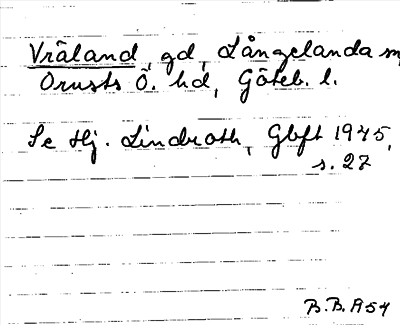 Vräland, gd, Långelanda sn,
Orusts Ö. hd, Göteb. l.
Se Hj. Lindroth, Gbft 1945,
s. 27
B.B. 1954